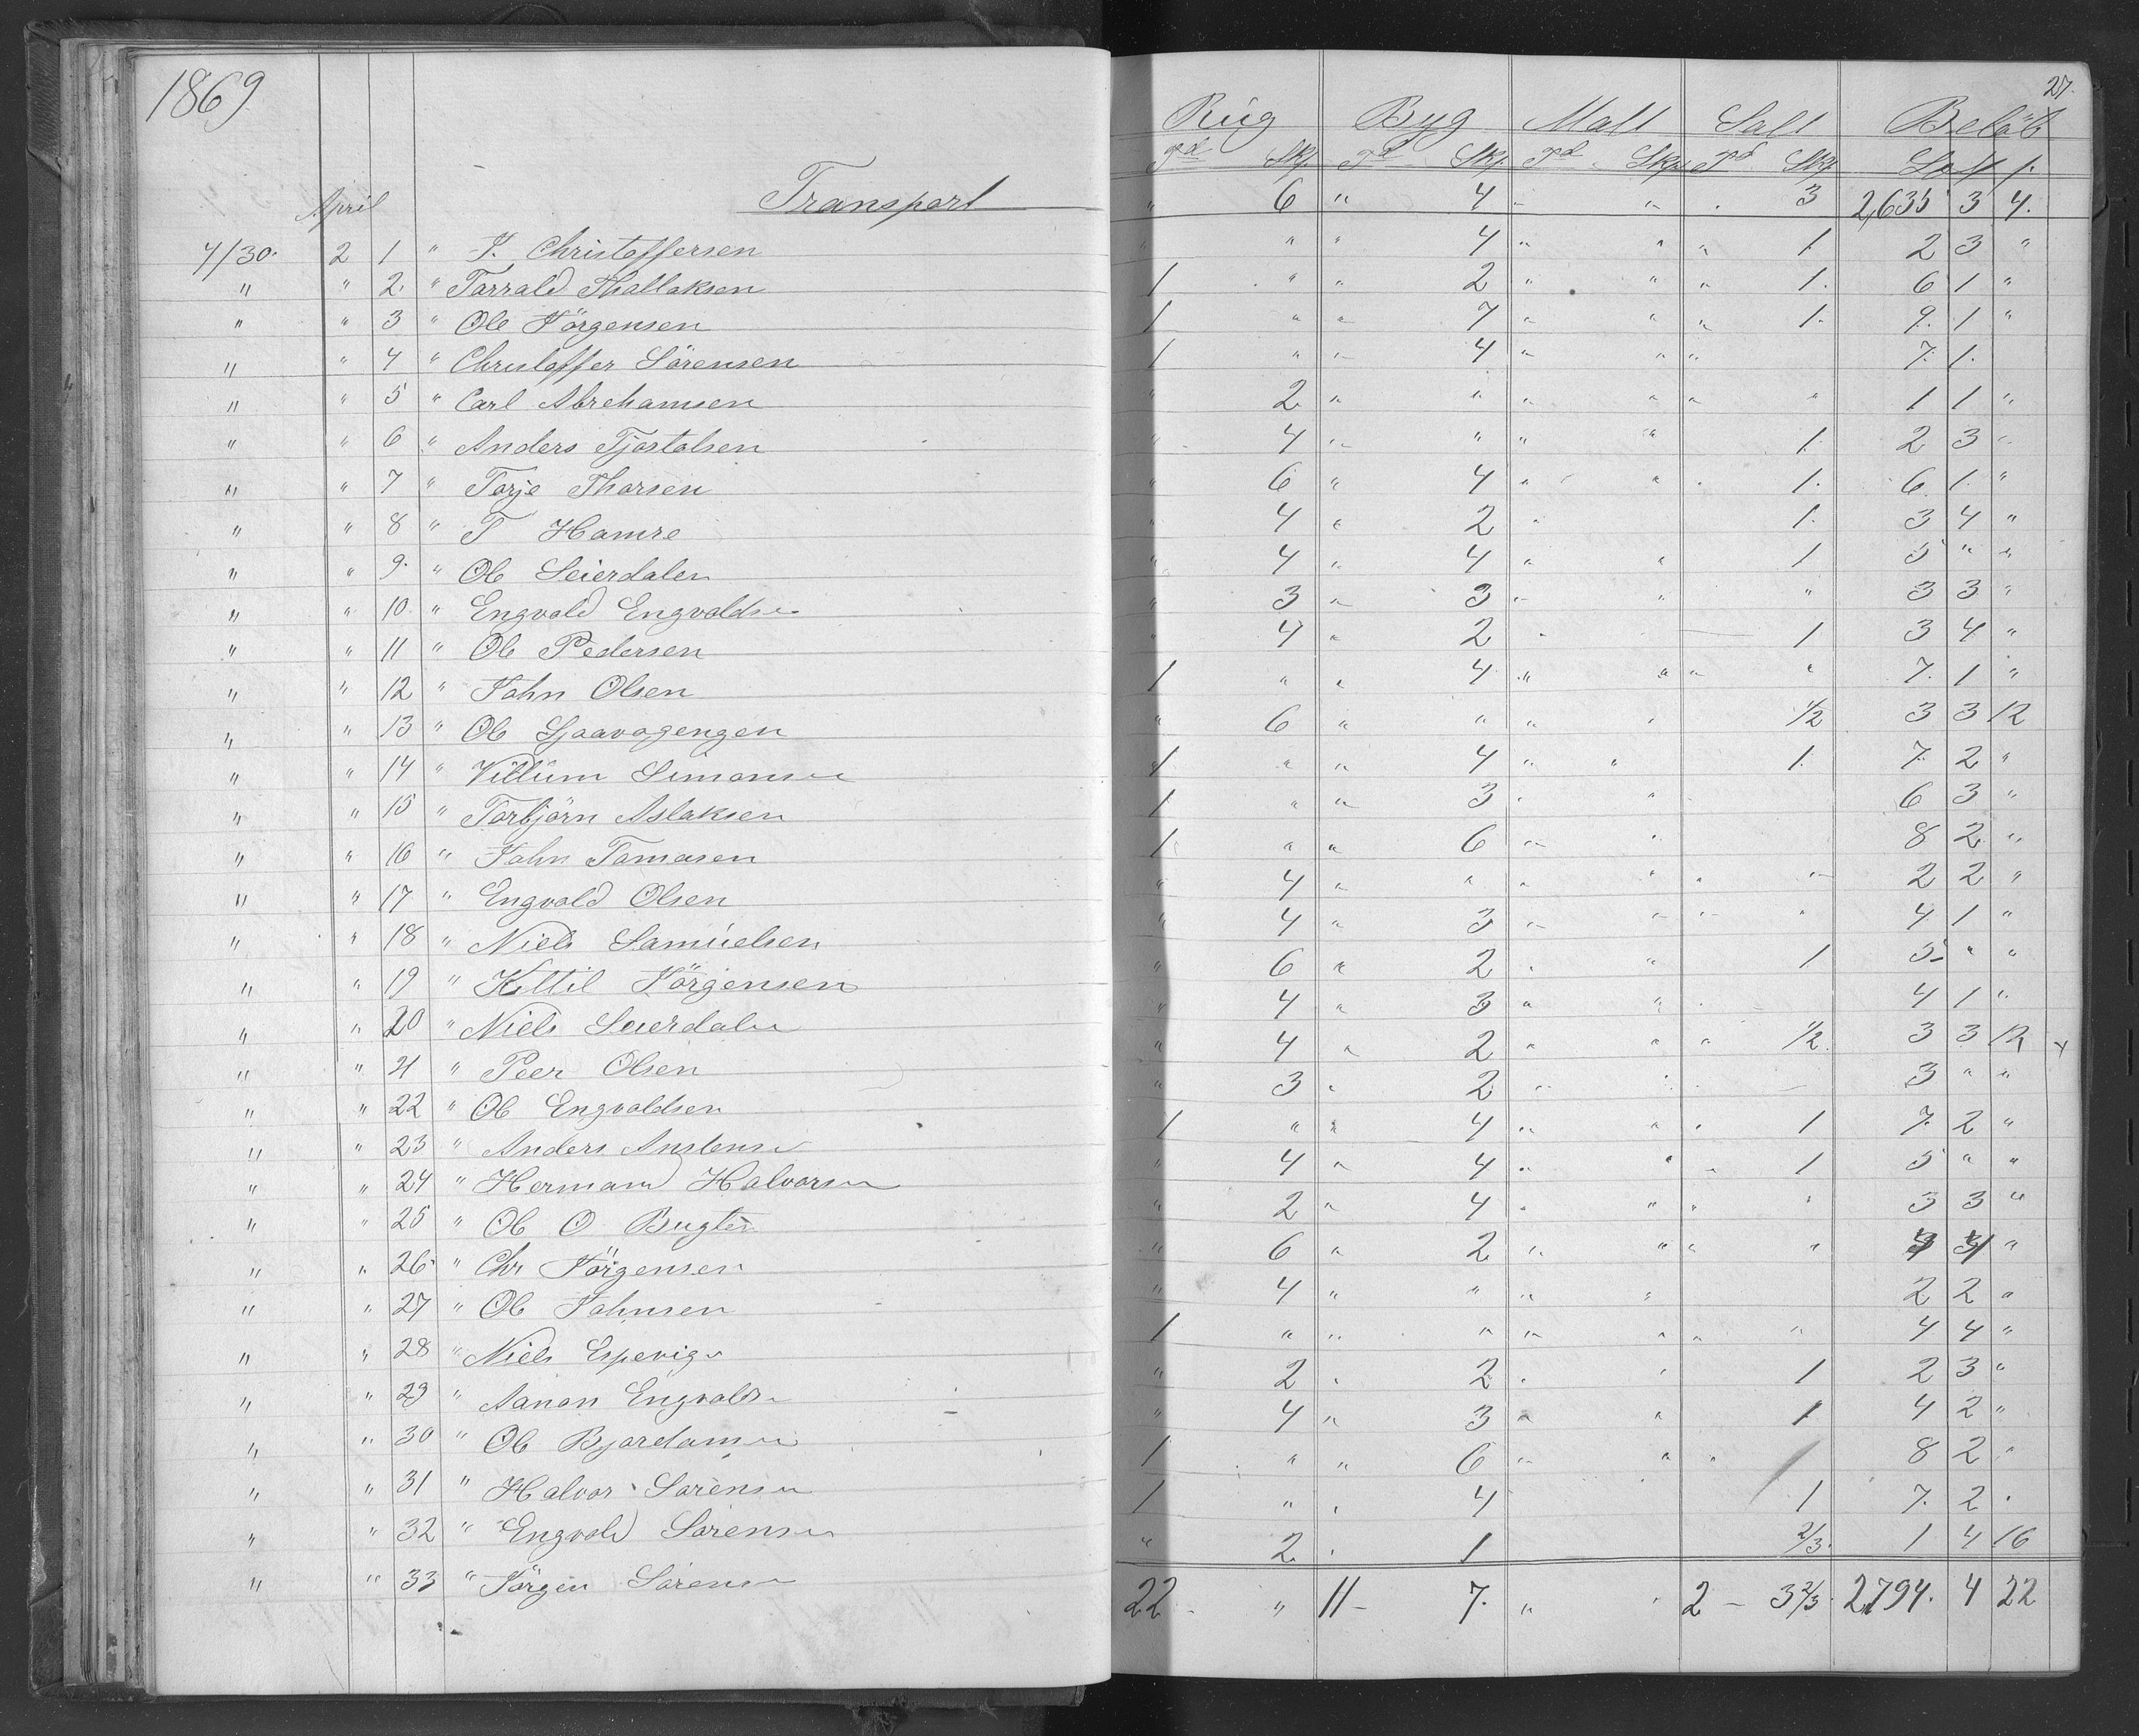 1869
27.
Rug Byg Malt Salt Beløb
Td Skp. Td Skp. Td Skp. Td Skp.
April Transport " 6 " 4 " " . 3 2,635 3 4.
4/30. 2 1 " J. Christoffersen " " " 4 " " " 1. 2 3 "
" " 2. " Tarrald Thallaksen 1 " " 2 " " " 1. 6 1 "
" " 3 " Ole Jörgensen 1 " " 7 " " " 1. 9. 1 "
" " 4 " Christoffer Sörensen 1 " " 4 " " " 7. 1.
" " 5 " Carl Abrehamsen " 2 " " " " " " 1 1 "
" " 6 " Anders Tjostolsen " 4 " " " " 1. 2 3 "
" " 7 " Torje Thorsen " 6 " 4 " " . 1. 6. 1. "
" " 8 " T Hamre " 4 " 2 " 1. 3 4 "
" " 9. " Ole Seierdalen " 4 " 4 " " 1 5 " "
" " 10. " Engvald Engvoldsen " 3 " 3 " " " 3 3 "
" " 11 " Ole Pedersen " 4 " 2 " 1 3 4 "
" " 12 " John Olsen 1 " " 4 " " " " 7. 1 "
" " 13 " Ole " 6 " " " " 1/2 3 3 12
" " 14 " Villum Simonsen 1 " " 4 " " 1. 7. 2 "
" " 15 " Torbjörn Aslaksen 1 " " 3 . " 6 3 "
" " 16 " John Tomasen 1 " " 6 " " 8 2 "
" " 17 " Engvald Olsen " 4 " " " " " " 2 2 "
" " 18 " Niels Samuelsen " 4 " 3 " " " " 4 1 "
" " 19 " Kittil Jörgensen " 6 " 2 . " 1 5 " "
" " 20 " Niels Seierdalen " 4 " 3 " " . 4 1 "
" " 21 " Peer Olsen " 4 " 2 " " " 1/2 3 3 12
" " 22 " Ole Engvoldsen " 3 " 2 " " 3 " "
" " 23 " Anders 1 " " 4 " " " 1 7. 2 "
" " 24 " Hermand Halvorsen " 4 " 4 " " " 1 5 " "
" " 25 " Ole O. " 2 " 4 " " " " 3 3 "
" " 26 " Chr Jörgensen " 6 " 2 " " " " 4 "
" " 27 " Ole Johnsen " 4 " " " " 2 2 "
" " 28 " Niels 1 " " " " " " " 4 4 "
" " 29 " Aanon Engvoldsen " 2 . 2 . " 1 2 3 "
" " 30 " Ole " 4 " 3 " " 1 4 2 "
" " 31 " Halvor Sörensen 1 " " 6 " " " 8 2 "
" " 32 " Engvold Sörensen 1 " . 4 1 7. 2 .
" " 33 " Jörgen Sörensen " 2 . 1 2/3. 1 4 16
22 - " 11 - 7. " " 2 - 3 2/3. 2,794. 4 22